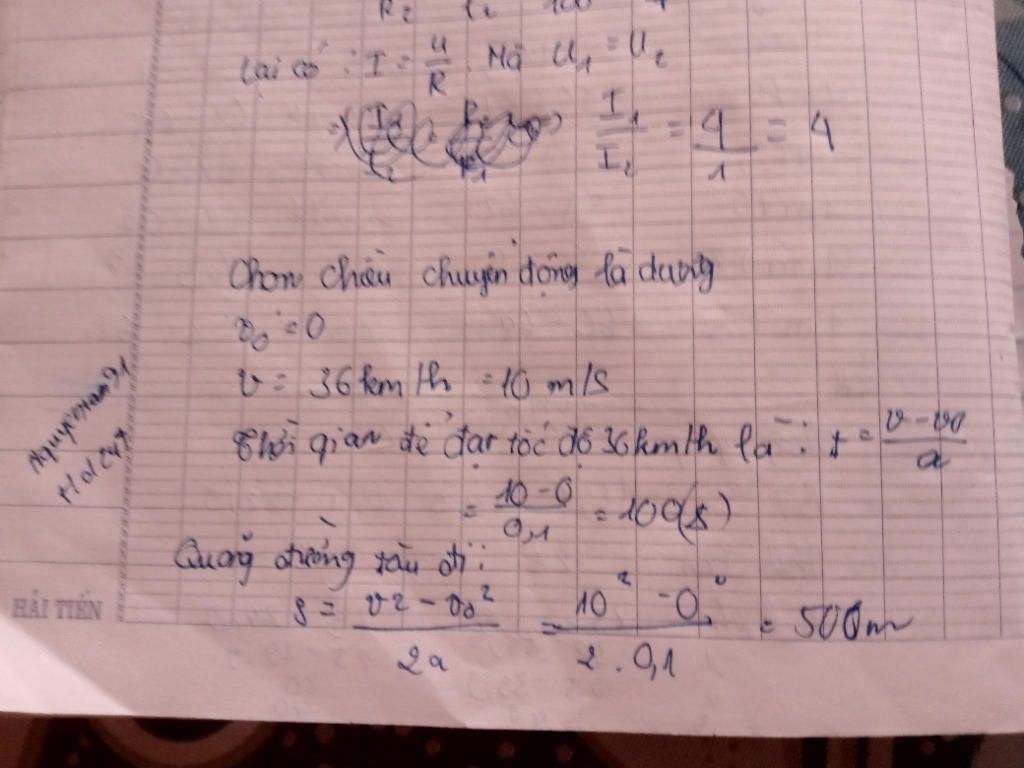 R₂ l₂ 100
Lại có : I = U/R . Mà U₁ = U₂
I₁/I₂ = 4/1 = 4
Chọn chiều chuyển động là dương
v₀ = 0
v = 36 km/h = 10 m/s
Thời gian để đạt tốc độ 36 km/h là : t = (v - v₀)/a
= (10 - 0)/0,1 = 100(s)
Quãng đường tàu đi :
s = (v² - v₀²)/2a = (10² - 0²)/(2 . 0,1) = 500m
HẢI TIẾN